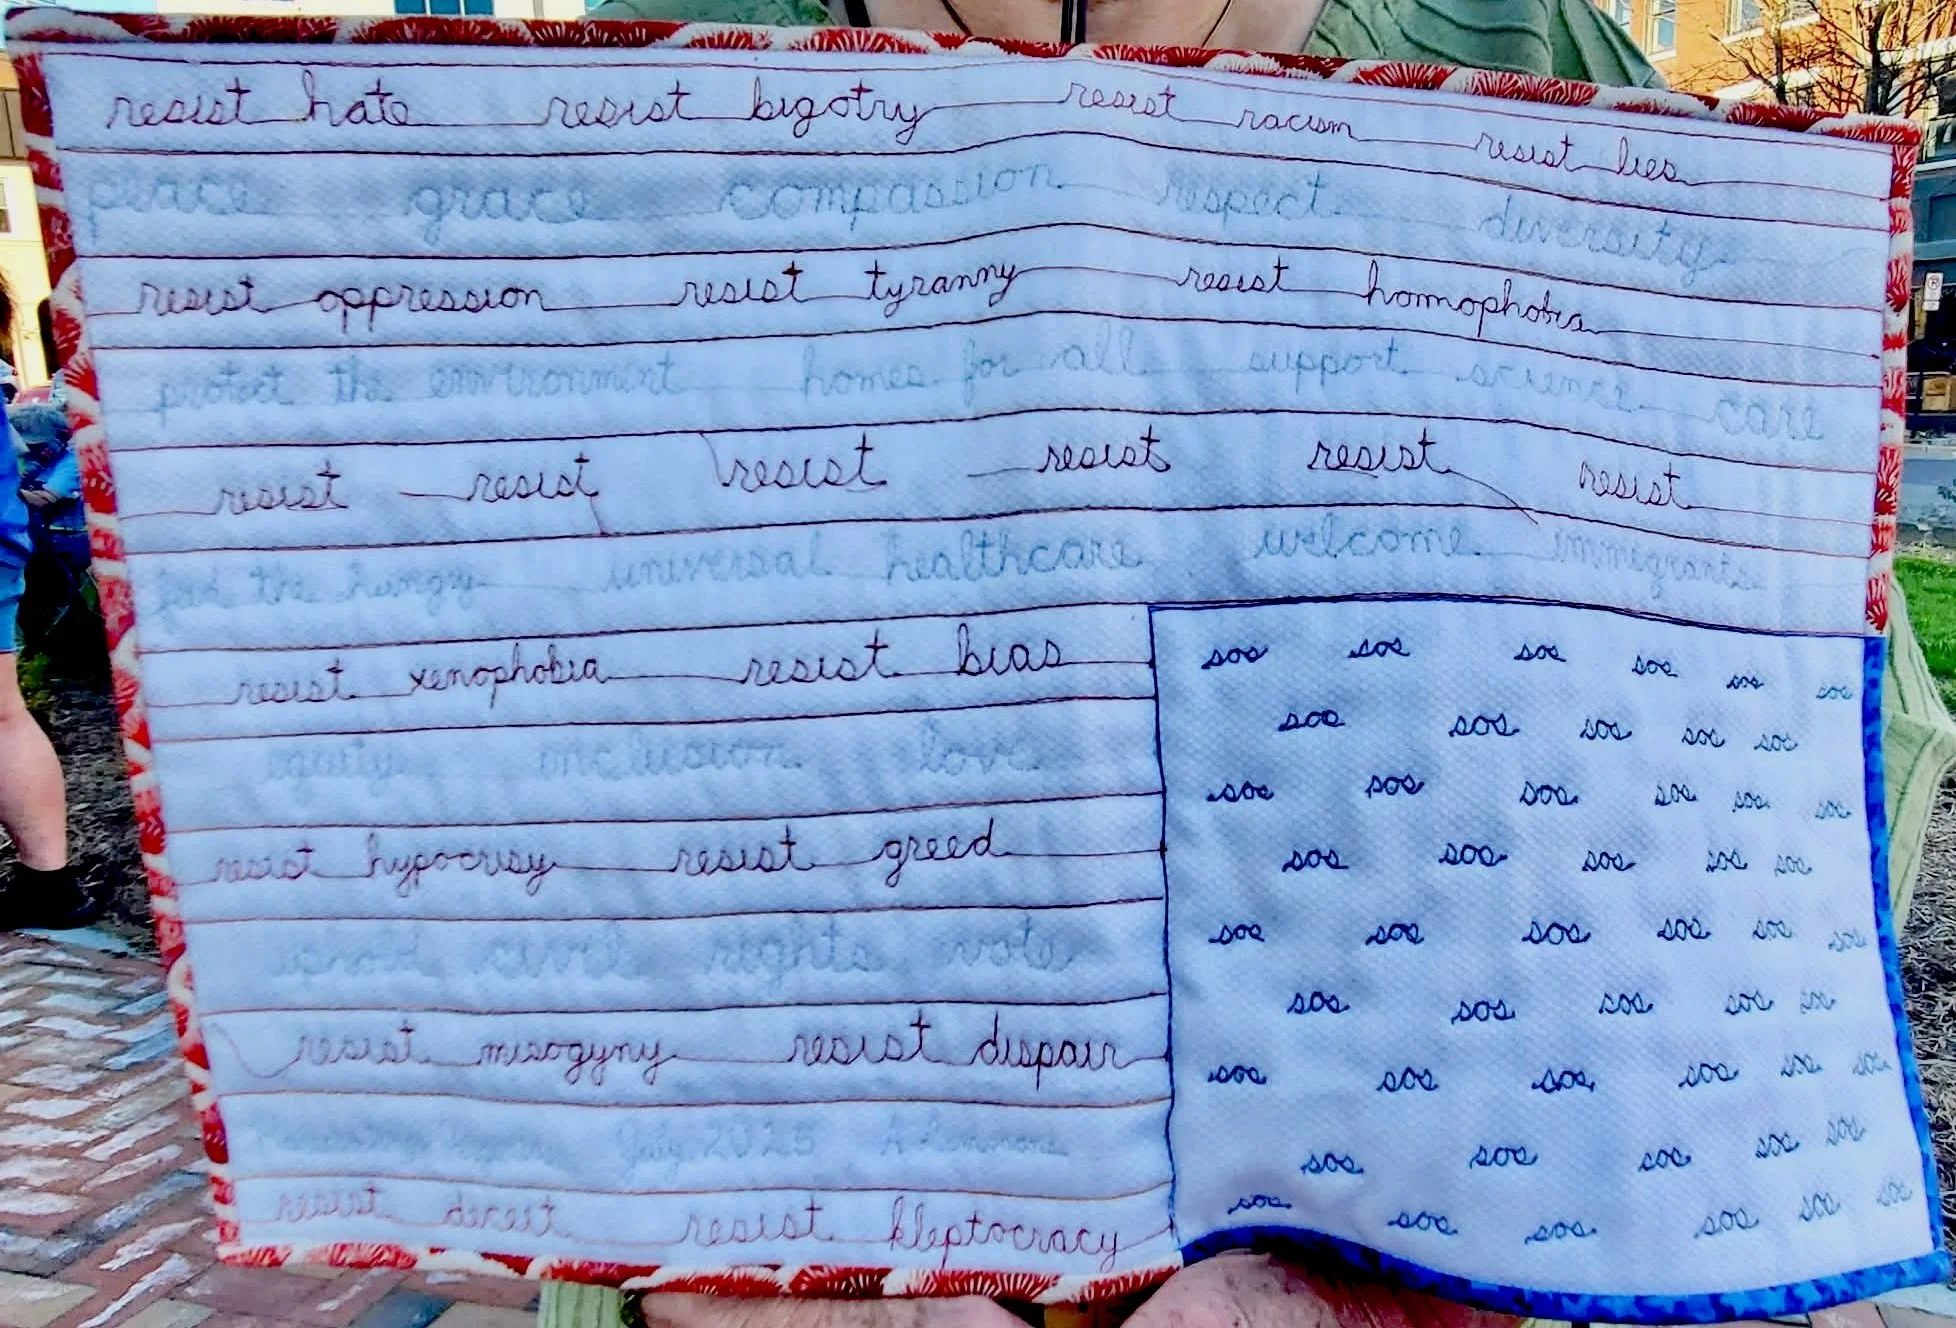 resist hate resist bigotry resist racism resist lies
peace grace compassion respect diversity
resist oppression resist tyranny resist homophobia
protect the environment homes for all support science care
resist resist resist resist resist resist
feed the hungry universal healthcare welcome immigrants
resist xenophobia resist bias
equity inclusion love
resist hypocrisy resist greed
civil rights vote
resist misogyny resist dispair
July 2025
resist deceit resist kleptocracy
sos sos sos sos sos sos
sos sos sos sos sos
sos sos sos sos sos sos
sos sos sos sos sos
sos sos sos sos sos sos
sos sos sos sos sos
sos sos sos sos sos sos
sos sos sos sos sos
sos sos sos sos sos sos